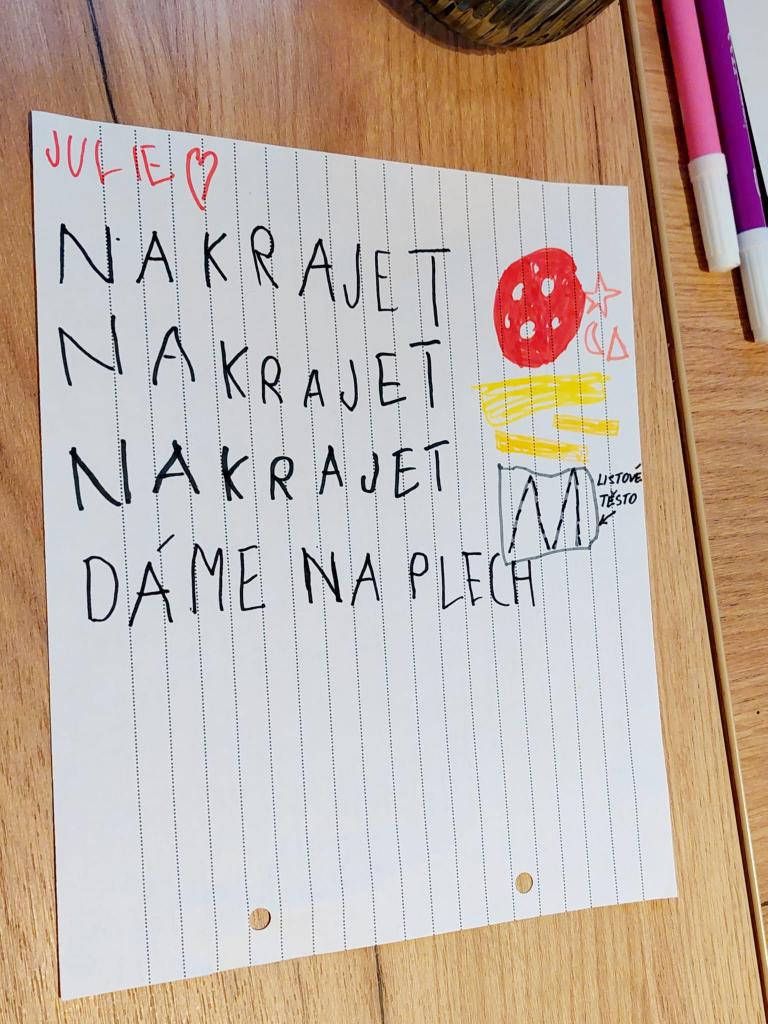 JULIE
NAKRAJET
NAKRAJET
NAKRAJET
M
LISTOVÉ
TĚSTO
DÁME NA PLECH